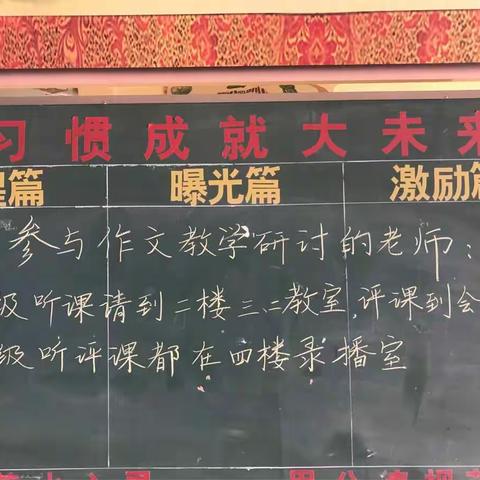 习惯成就大未来
程篇 曝光篇 激励篇
参与作文教学研讨的老师:
级听课请到二楼三.二教室,评课到会
级听评课都在四楼录播室